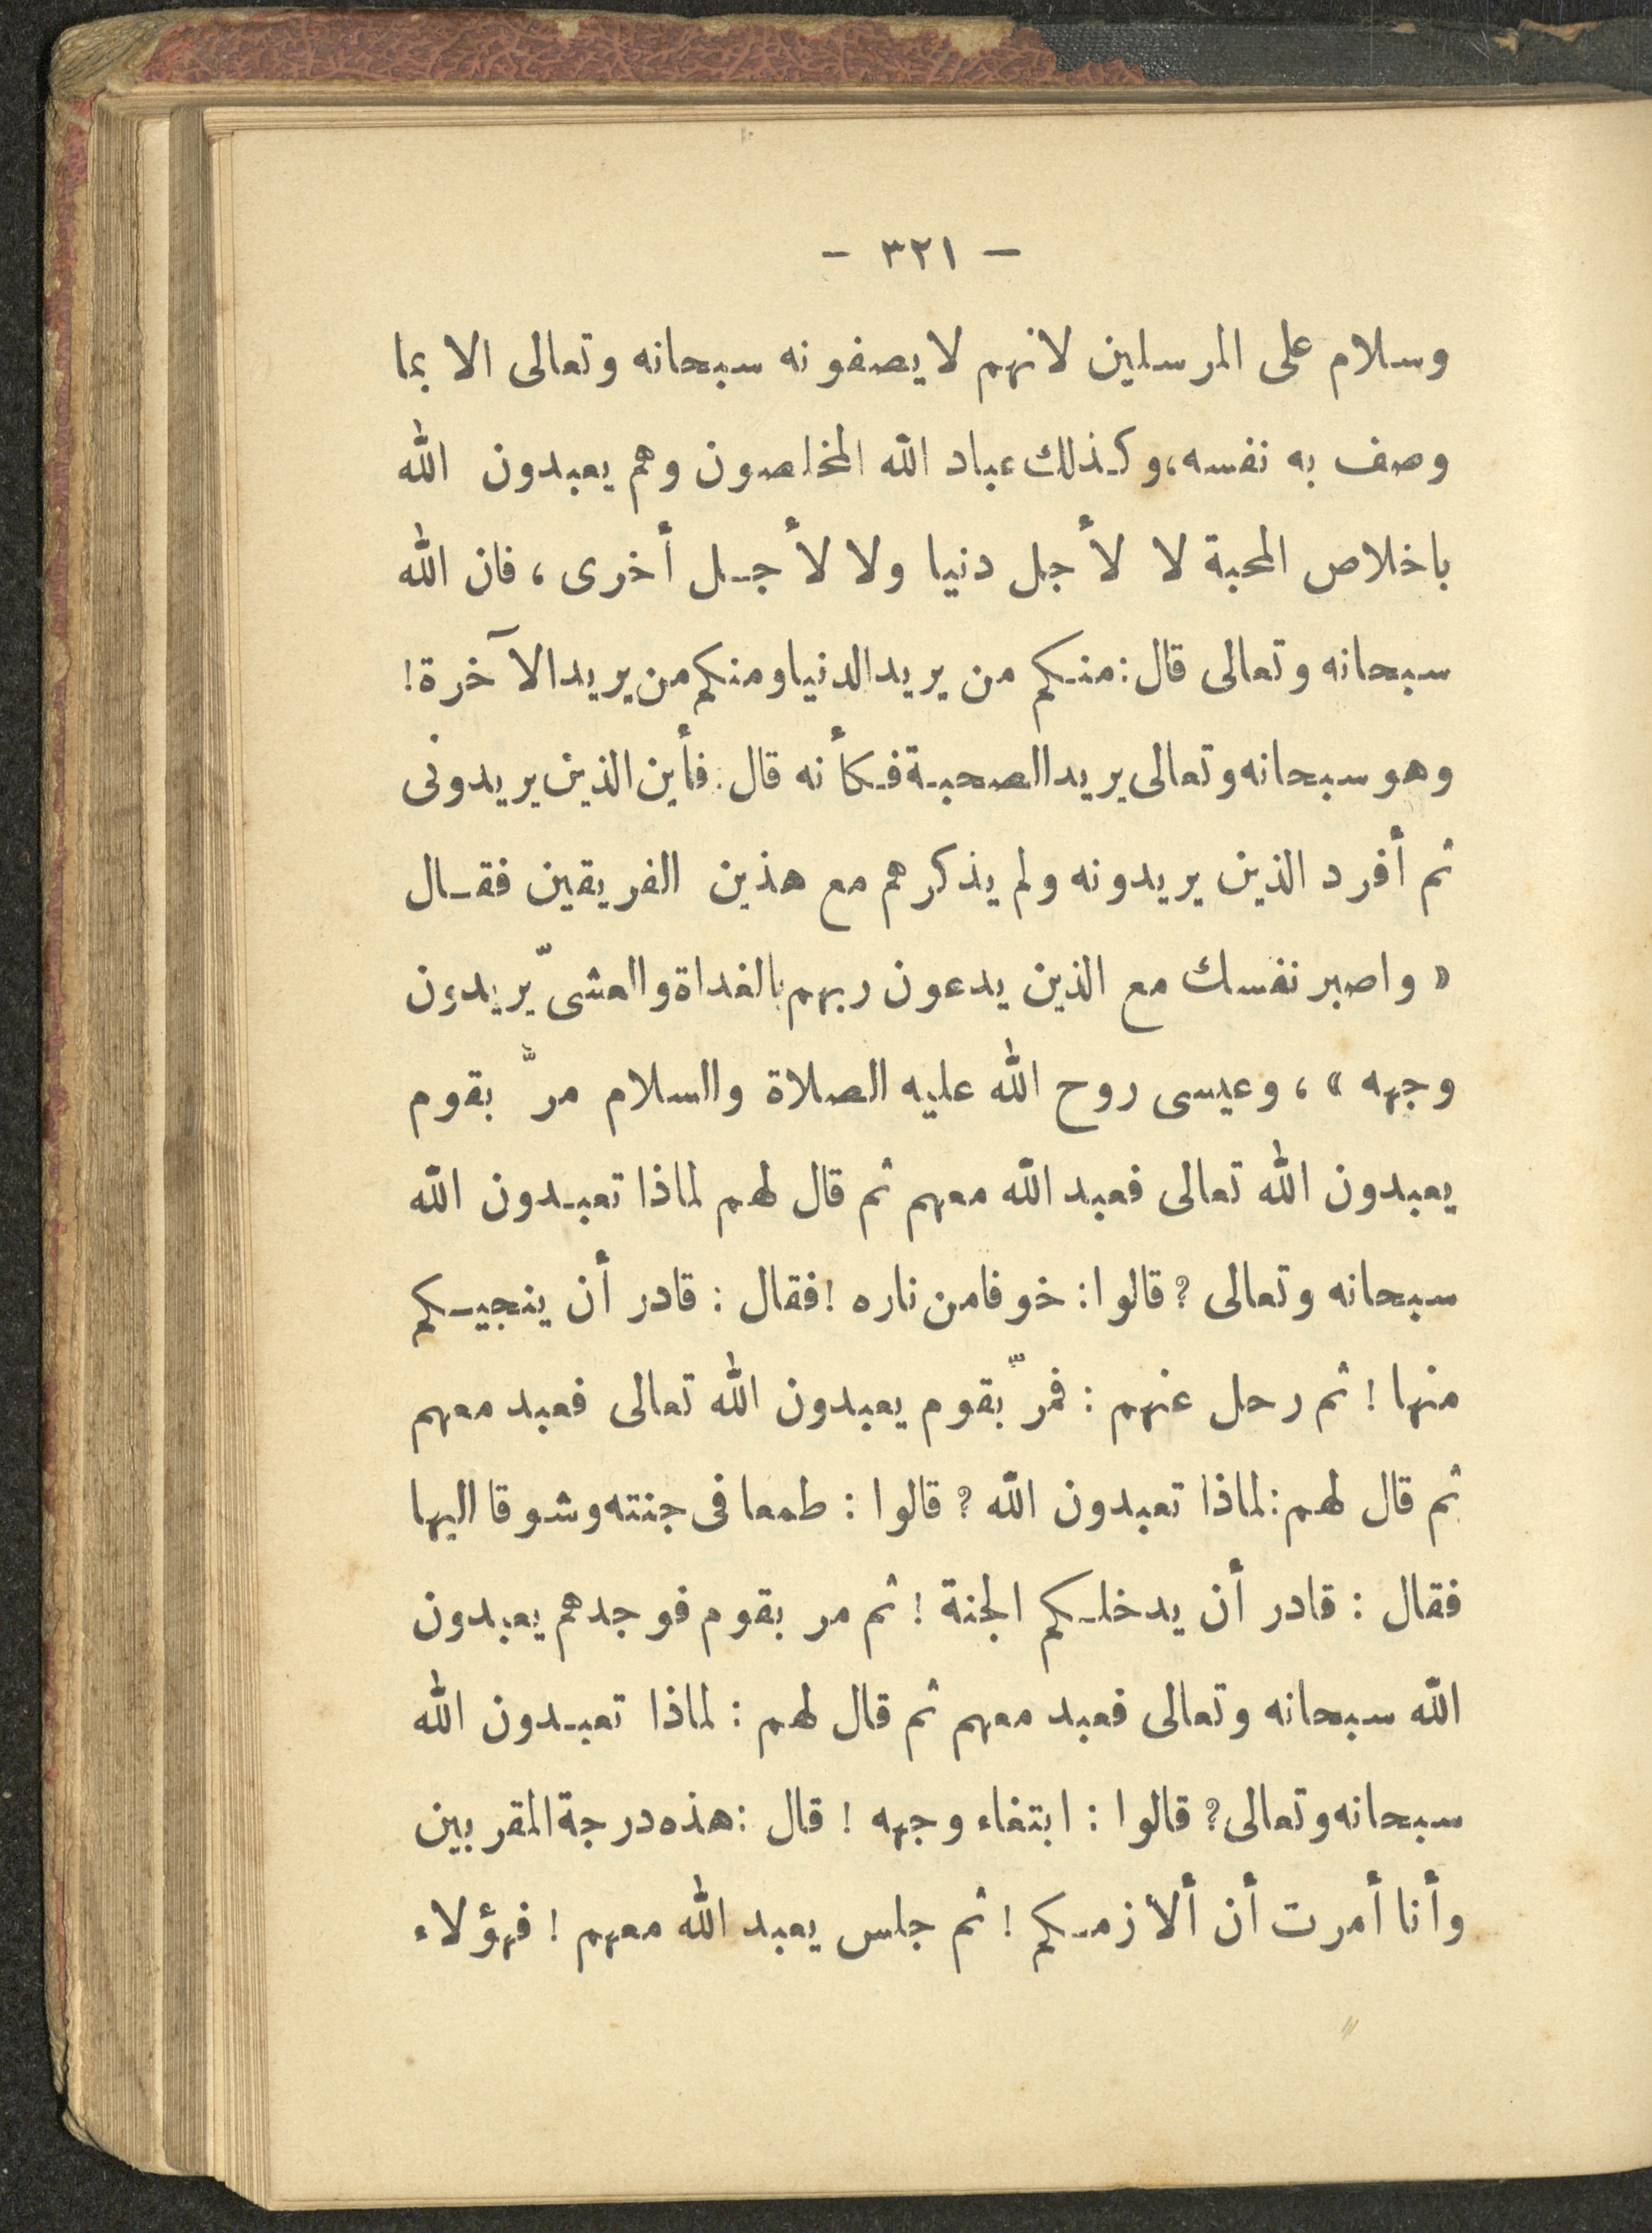 — ٣٢١ —
وسلام على المرسلين لانهم لايصفونه سبحانه وتعالى الا بما
وصف به نفسه، وكذلك عباد الله المخلصون وهم يعبدون الله
باخلاص المحبة لا لأجل دنيا ولا لأجل أخرى، فان الله
سبحانه وتعالى قال: منكم من يريد الدنيا ومنكم من يريد الآخرة!
وهو سبحانه وتعالى يريد الصحبة فكأنه قال: فأين الذين يريدونى
ثم أفرد الذين يريدونه ولم يذكرهم مع هذين الفريقين فقال
« واصبر نفسك مع الذين يدعون ربهم بالغداة والعشىّ يريدون
وجهه »، وعيسى روح الله عليه الصلاة والسلام مرَّ بقوم
يعبدون الله تعالى فعبد الله معهم ثم قال لهم لماذا تعبدون الله
سبحانه وتعالى؟ قالوا: خوفا من ناره! فقال: قادر أن ينجيكم
منها! ثم رحل عنهم: فمرّ بقوم يعبدون الله تعالى فعبد معهم
ثم قال لهم: لماذا تعبدون الله؟ قالوا: طمعا فى جنته وشوقا اليها
فقال: قادر أن يدخلكم الجنة! ثم مر بقوم فوجدهم يعبدون
الله سبحانه وتعالى فعبد معهم ثم قال لهم: لماذا تعبدون الله
سبحانه وتعالى؟ قالوا: ابتغاء وجهه! قال: هذه درجة المقربين
وأنا أمرت أن ألازمكم! ثم جلس يعبد الله معهم! فهؤلاء